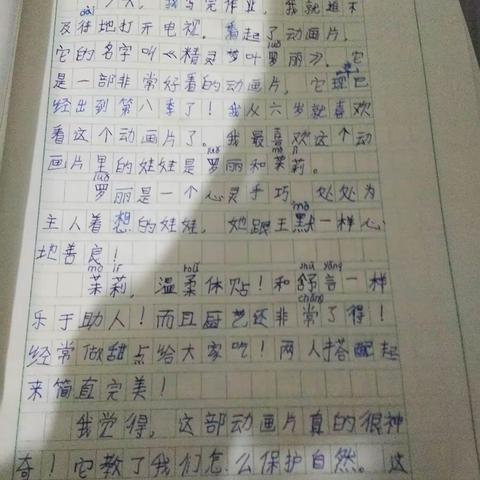 天，我写完作业，我就迫不
及待地打开电视，看起了动画片，
它的名字叫《精灵梦叶罗丽》。它
是一部非常好看的动画片，它现已
经出到第八季了！我从六岁就喜欢
看这个动画片了。我最喜欢这个动
画片里的娃娃是罗丽和茉莉。
罗丽是一个心灵手巧，处处为
主人着想的娃娃，她跟王默一样心
地善良！
茉莉，温柔体贴！和舒言一样
乐于助人！而且厨艺还非常了得！
经常做甜点给大家吃！两人搭配起
来简直完美！
我觉得，这部动画片真的很神
奇！它教了我们怎么保护自然。这